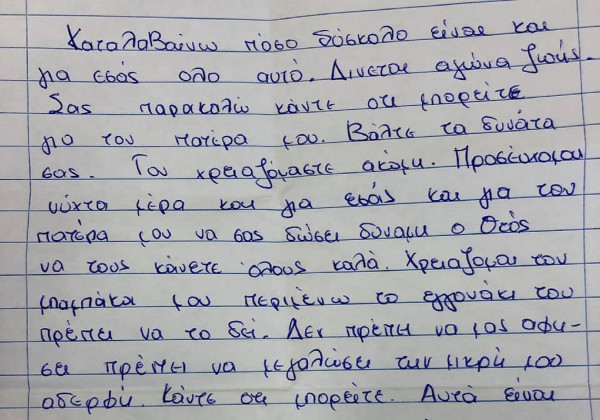 Καταλαβαίνω πόσο δύσκολο είναι και
για εσάς όλο αυτό. Δίνεται αγώνα ζωής.
Σας παρακαλώ κάντε ότι μπορείτε
για τον πατέρα μου. Βάλτε τα δυνατά
σας. Τον χρειαζόμαστε ακόμη. Προσεύχομαι
νύχτα μέρα και για εσάς και για τον
πατέρα μου να σας δώσει δύναμη ο Θεός
να τους κάνετε όλους καλά. Χρειάζομαι τον
μπαμπάκα μου περιμένω το εγγονάκι του
πρέπει να το δει. Δεν πρέπει να μας αφή-
σει πρέπει να μεγαλώσει την μικρή μου
αδερφή. Κάντε ότι μπορείτε. Αυτά είναι